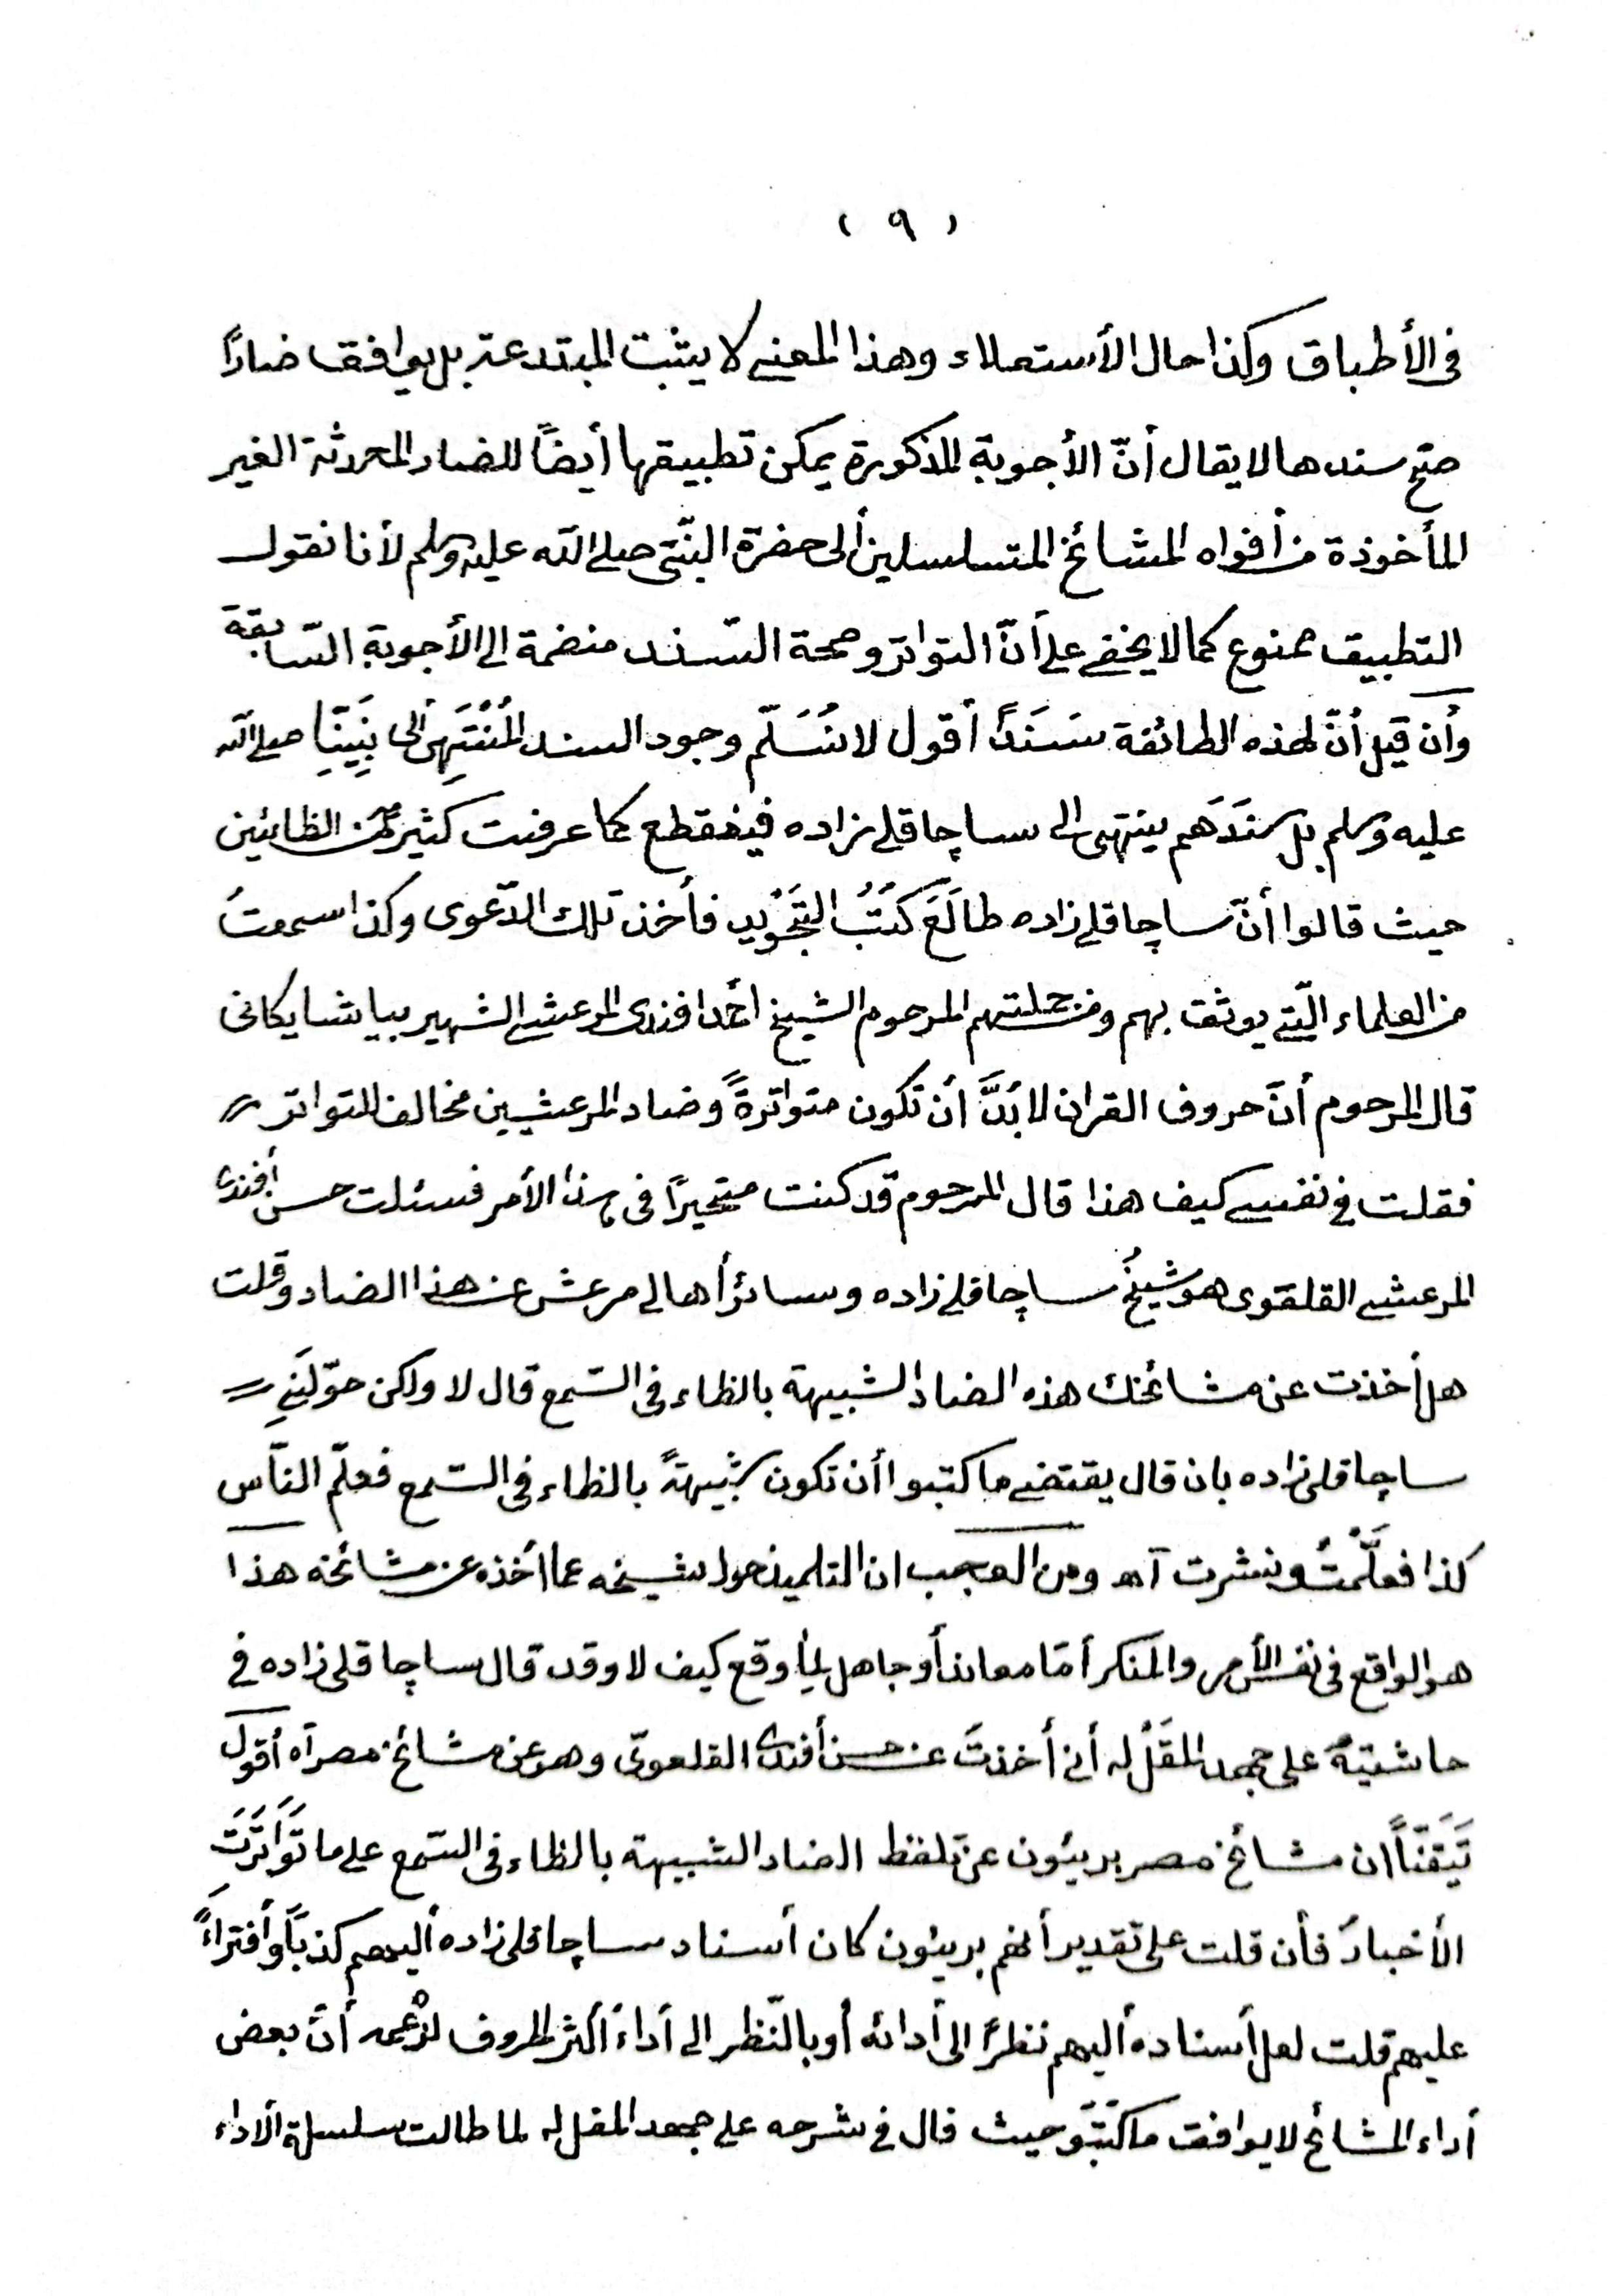 ( ٩ )
فى الأطباق وكذا حال الأستعلاء وهذا المعنے لا يثبت المبتدعة بل يوافق ضاداً
صح سندها لا يقال أنّ الأجوبة المذكورة يمكن تطبيقها أيضاً للضاد المحدثة الغير
المأخوذة من أفواه المشائخ المتسلسلين ألى حضرة النبّى صلى الله عليه وسلم لأنا نقول
التطبيق ممنوع كما لا يخفے على أنّ التواتر وصحة السّند منضمة الى الأجوبة السّابقة
وأن قيل أنّ لهذه الطائفة سَنَداً أقول لا نُسَلّم وجود السند المُنْتَهِى ألى نَبِيّنَا صلى الله
عليه وسلم بل سَنَدَهم ينتهى الى ساچاقلى زاده فينقطع كما عرفت كثير من الظائين
حيث قالوا أنّ ساچاقلى زاده طالَعَ كُتُبُ التجْوِيد فأخذ تلك الدّعوى وكذا سمعتُ
من العلماء الّتے يوثق بهم ومن جملتهم المرحوم الشيخ احمد افندى المرعشے الشهير بپاشا يكانى
قال المرحوم أنّ حروف القران لا بُدَّ أن تكون متواترةً وضاد المرعشيين مخالف للتواتر
فقلت فى نفسے كيف هذا قال المرحوم قد كنت متحيراً فى هذا الأمر فسئلت حسن أفندى
المرعشے القلقوى هو شيخُ ساچاقلى زاده وسائر أهالى مرعش عن هذا الضاد وقلت
هل أخذت عن مشائخك هذه الضاد الشبيهة بالظاء فى السّمع قال لا ولكن حوّلَنِى
ساچاقلى زاده بان قال يقتضے ما كتبوا أن تكون شبيهةً بالظاء فى السّمع فعلّم النّاس
كذا فعلَّمْتُ ونشرت آه ومن العجب ان التلميذ حول شيخه عما أخذه عن مشائخه هذا
هو الواقع فى نفس الأمر والمنكر أمّا معاند أو جاهل لما وقع كيف لا وقد قال ساچاقلى زاده فى
حاشتية على جهد المقلّ له أنى أخذتَ عن حسن أفندى القلعوىّ وهو عن مشائخ مصر آه أقول
تَيَقّناً ان مشائخ مصر بريئون عن تلفظ الضاد الشبيهة بالظاء فى السّمع على ما تَوَاتَرَت
الأخبارَ فأن قلت على تقدير أنهم بريئون كان أسناد ساچاقلى زاده أليهم كذباً وأفتراءً
عليهم قلت لعل أسناده أليهم نظراً الى أدائه أو بالنّظر الى أداء أكثر الحروف لزعمه أنّ بعض
أداء المشائخ لا يوافق ما كَتَبَو حيث قال فى شرحه على جهد المقل له لما طالت سلسلة الأداء